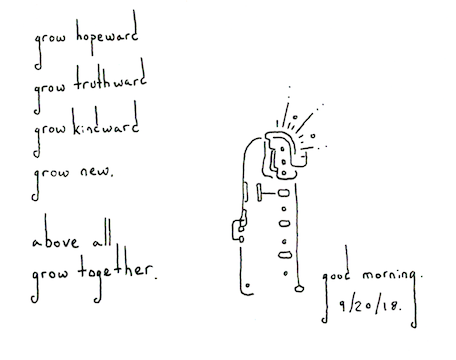 grow hopeward
grow truthward
grow kindward
grow new.
above all
grow together.
good morning.
9/20/18.